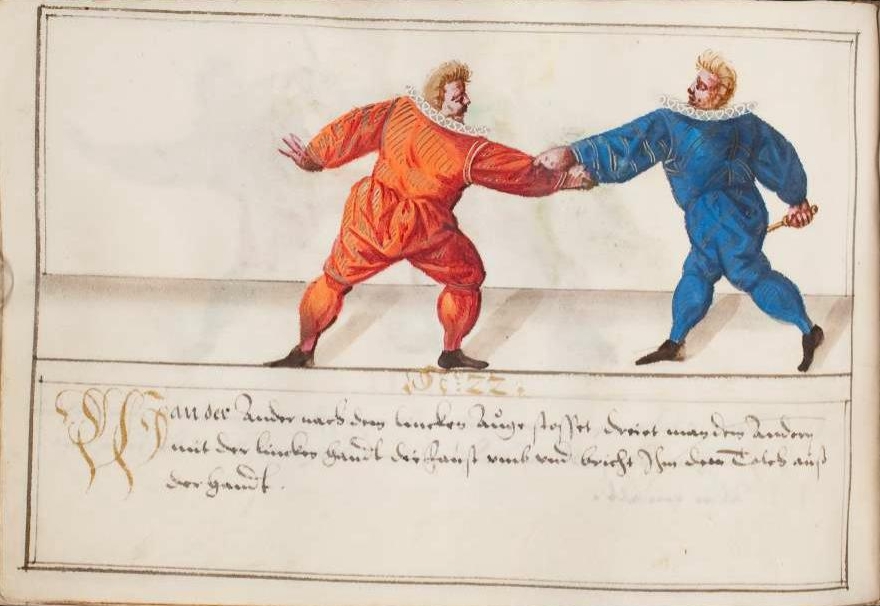 N: 22.
Wan der Ander nach dem lincken Auge stosset, dreiet man dem Andern
mit der lincken handt die Faust vmb vnd bricht Ihm den Tolch auß
der handt.